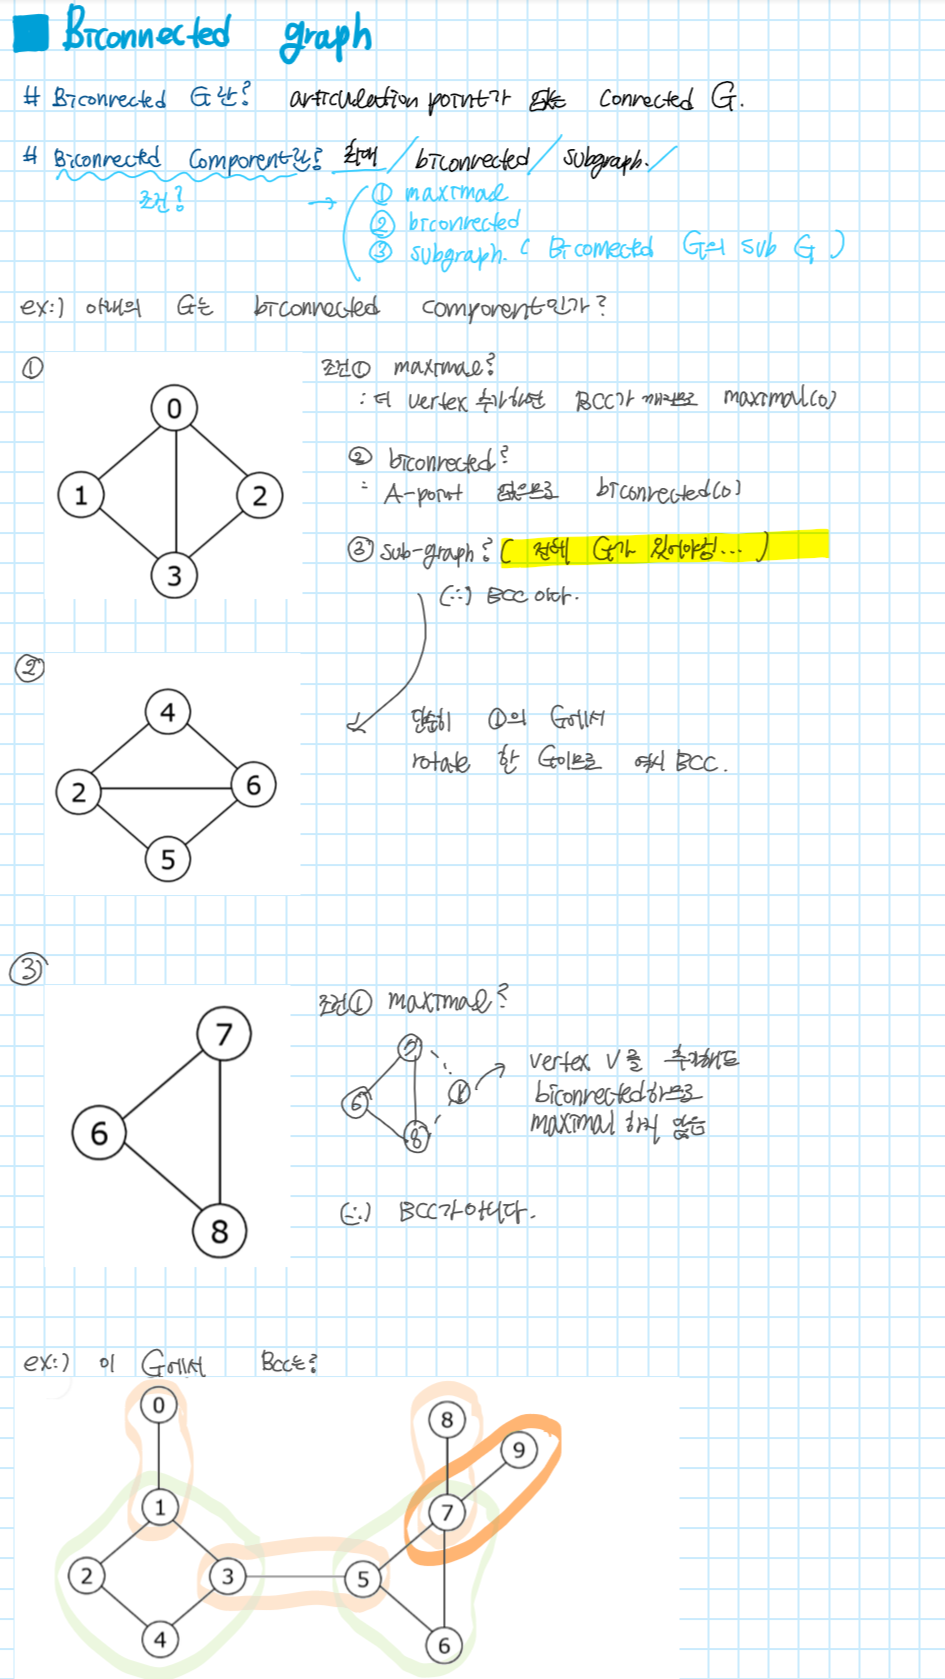 Biconnected graph
# Biconnected G란? articulation point가 없는 connected G.
# Biconnected Component란? 최대 / biconnected / subgraph. /
조건? → ① maximal
② biconnected
③ subgraph. ( Biconnected G의 sub G )
ex:) 아래의 G는 biconnected component인가?
①
0
1
2
3
조건① maximal?
: 더 vertex 추가하면 BCC가 깨지므로 maximal(o)
② biconnected?
: A-point 없으므로 biconnected(o)
③ sub-graph? ( 전체 G가 있어야함... )
(∴) BCC 이다.
②
4
2
6
5
단순히 ①의 G에서
rotate 한 G이므로 역시 BCC.
③
7
6
8
조건① maximal?
7
6
8
V
vertex V를 추가해도
biconnected하므로
maximal 하지 않음
(∴) BCC가 아니다.
ex:) 이 G에서 BCC는?
0
8
9
1
7
2
3
5
4
6